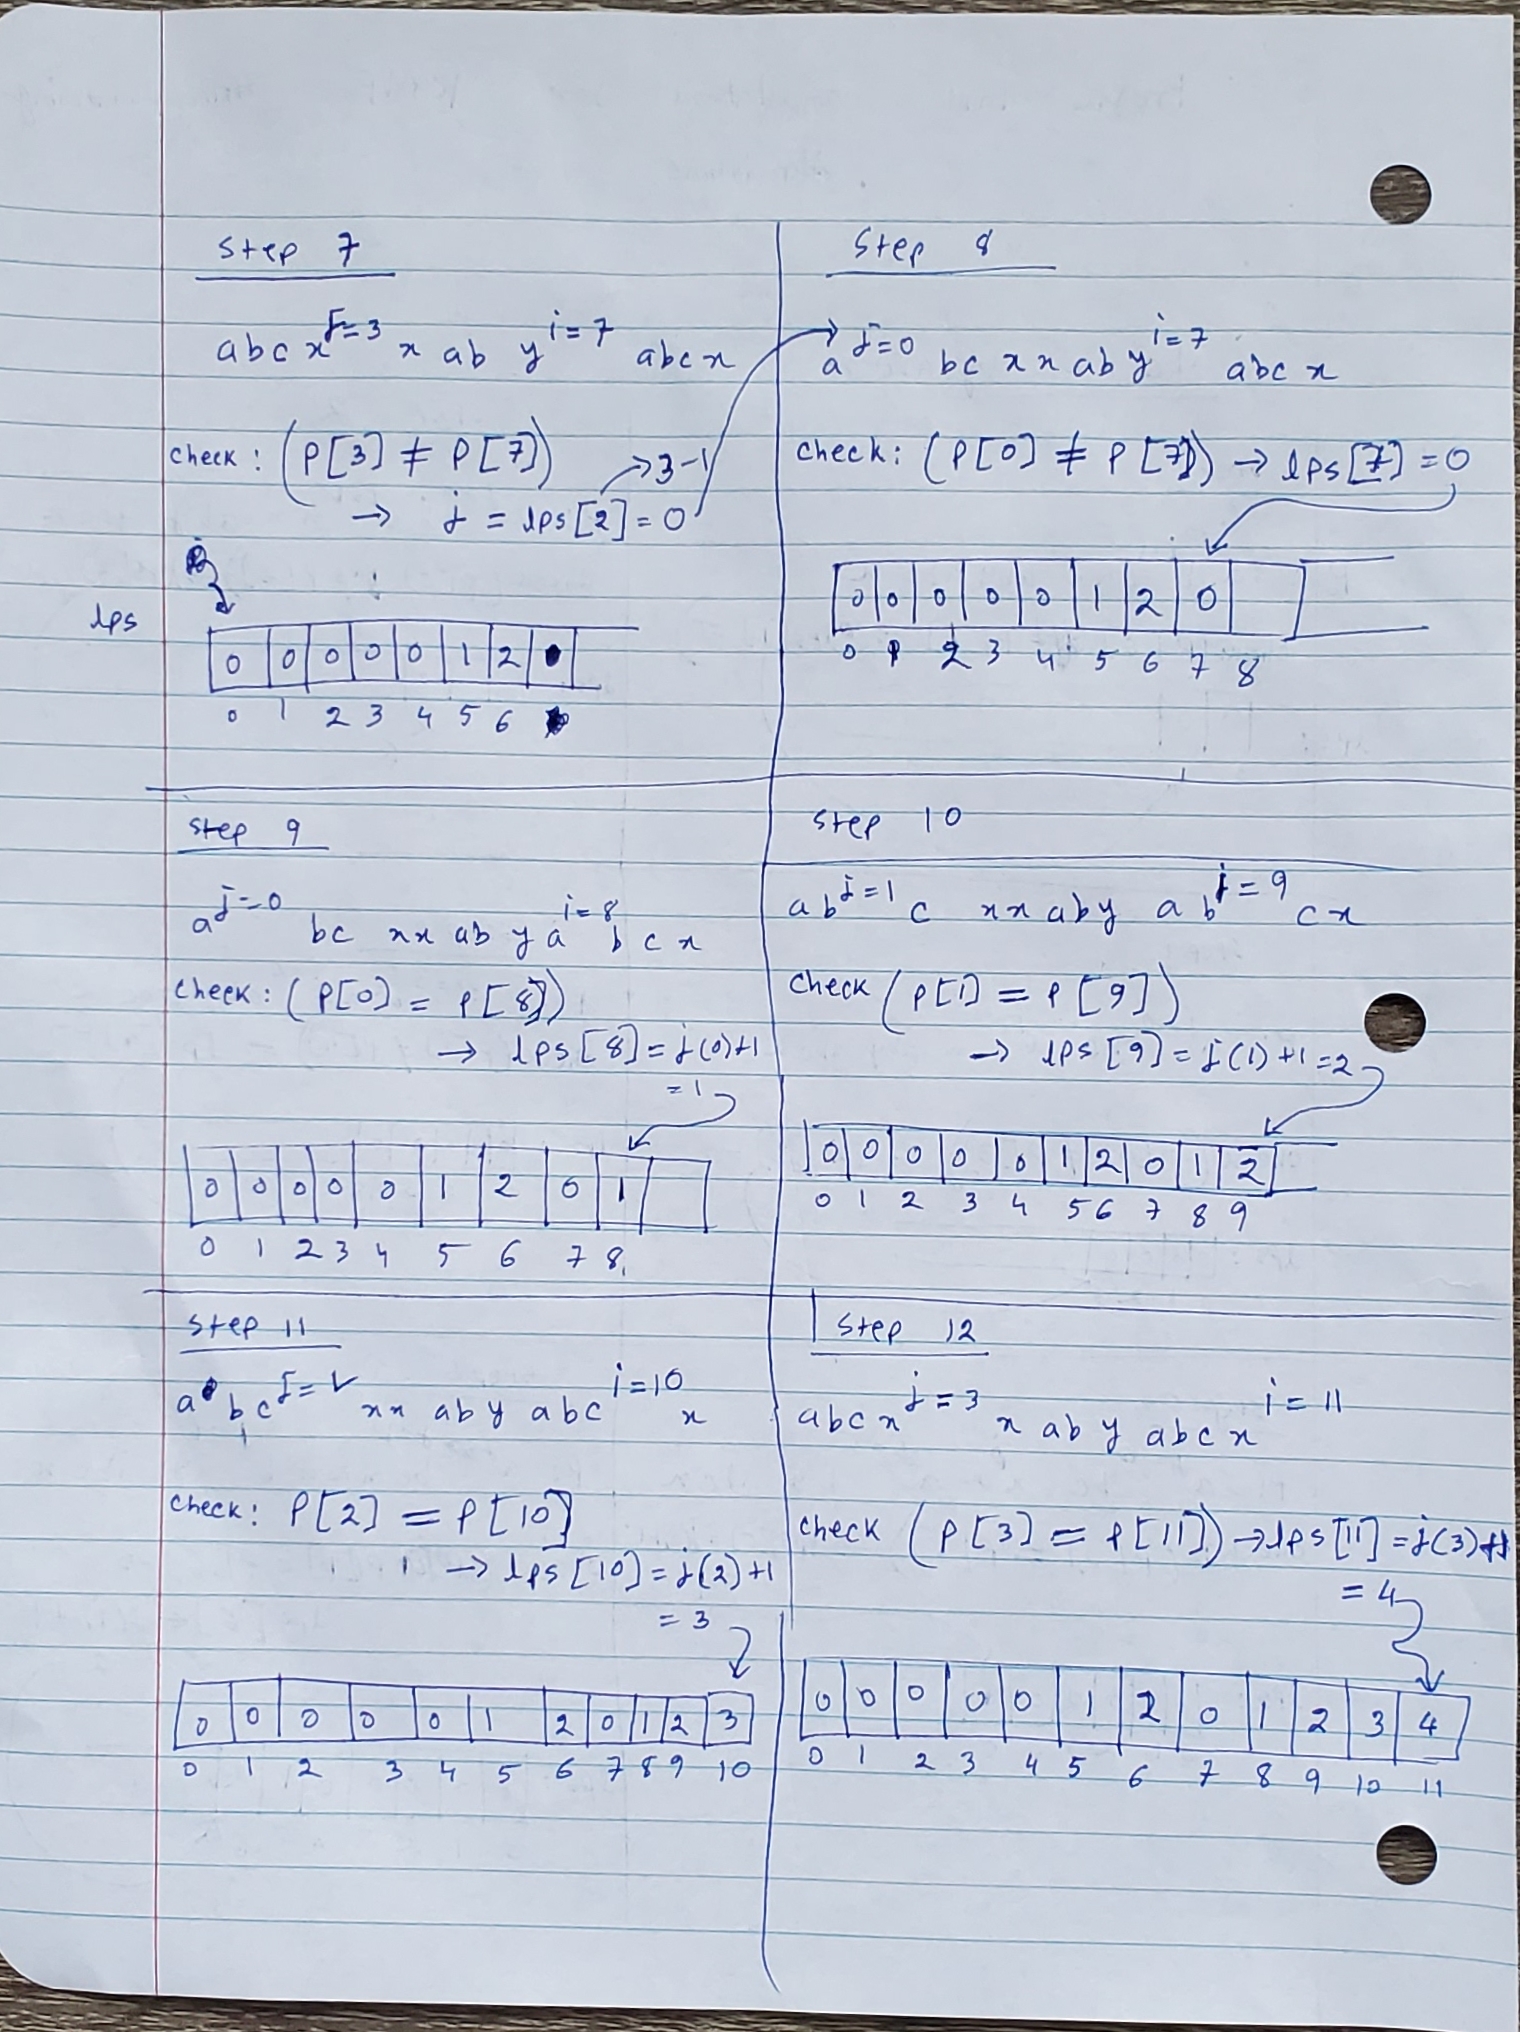 Step 7
abcx j=3 x ab y i=7 abcx
check: (P[3] ≠ P[7])
→ j = lps[2] = 0 → 3-1
lps
0 0 0 0 0 1 2
0 1 2 3 4 5 6
Step 8
a j=0 bc xx ab y i=7 abc x
check: (P[0] ≠ P[7]) → lps[7] = 0
0 0 0 0 0 1 2 0
0 1 2 3 4 5 6 7 8
Step 9
a j=0 bc xx ab y a i=8 b c x
check: (P[0] = P[8])
→ lps[8] = j(0)+1
= 1
0 0 0 0 0 1 2 0 1
0 1 2 3 4 5 6 7 8
Step 10
ab j=1 c xx aby ab j=9 cx
check (P[1] = P[9])
→ lps[9] = j(1)+1=2
0 0 0 0 0 1 2 0 1 2
0 1 2 3 4 5 6 7 8 9
Step 11
a bc j= xx aby abc i=10 x
check: P[2] = P[10]
→ lps[10] = j(2)+1
= 3
0 0 0 0 0 1 2 0 1 2 3
0 1 2 3 4 5 6 7 8 9 10
Step 12
abcx j=3 x ab y abcx i=11
check (P[3] = P[11]) → lps[11] = j(3)+1
= 4
0 0 0 0 0 1 2 0 1 2 3 4
0 1 2 3 4 5 6 7 8 9 10 11